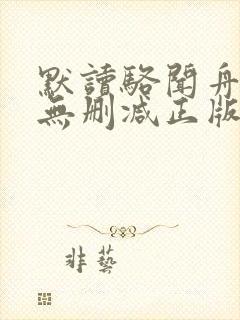 默讀駱聞舟
無刪減正版
非藝